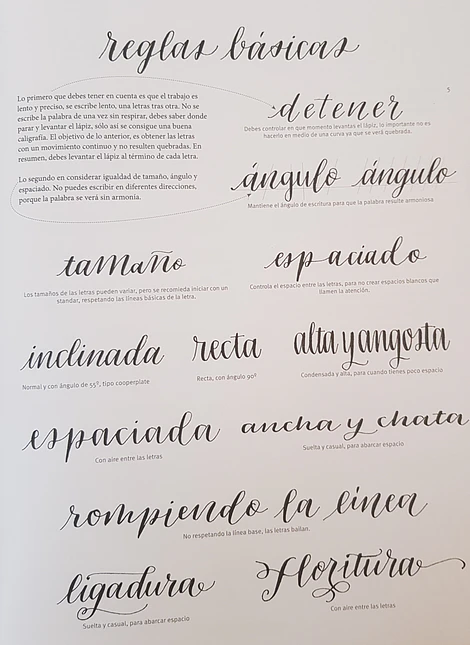 reglas básicas
Lo primero que debes tener en cuenta es que el trabajo es
lento y preciso, se escribe lento, una letras tras otra. No se
escribe la palabra de una vez sin respirar, debes saber donde
parar y levantar el lápiz, sólo así se consigue una buena
caligrafía. El objetivo de lo anterior, es obtener las letras
con un movimiento continuo y no resulten quebradas. En
resumen, debes levantar el lápiz al término de cada letra.
Lo segundo en considerar igualdad de tamaño, ángulo y
espaciado. No puedes escribir en diferentes direcciones,
porque la palabra se verá sin armonía.
5
detener
Debes controlar en que momento levantas el lápiz, lo importante no es
hacerlo en medio de una curva ya que se verá quebrada.
ángulo ángulo
Mantiene el ángulo de escritura para que la palabra resulte armoniosa
tamaño
Los tamaños de las letras pueden variar, pero se recomieda iniciar con un
standar, respetando las líneas básicas de la letra.
espaciado
Controla el espacio entre las letras, para no crear espacios blancos que
llamen la atención.
inclinada
Normal y con ángulo de 55º, tipo cooperplate
recta
Recta, con ángulo 90º
alta y angosta
Condensada y alta, para cuando tienes poco espacio
espaciada
Con aire entre las letras
ancha y chata
Suelta y casual, para abarcar espacio
rompiendo la línea
No respetando la línea base, las letras bailan.
ligadura
Suelta y casual, para abarcar espacio
floritura
Con aire entre las letras